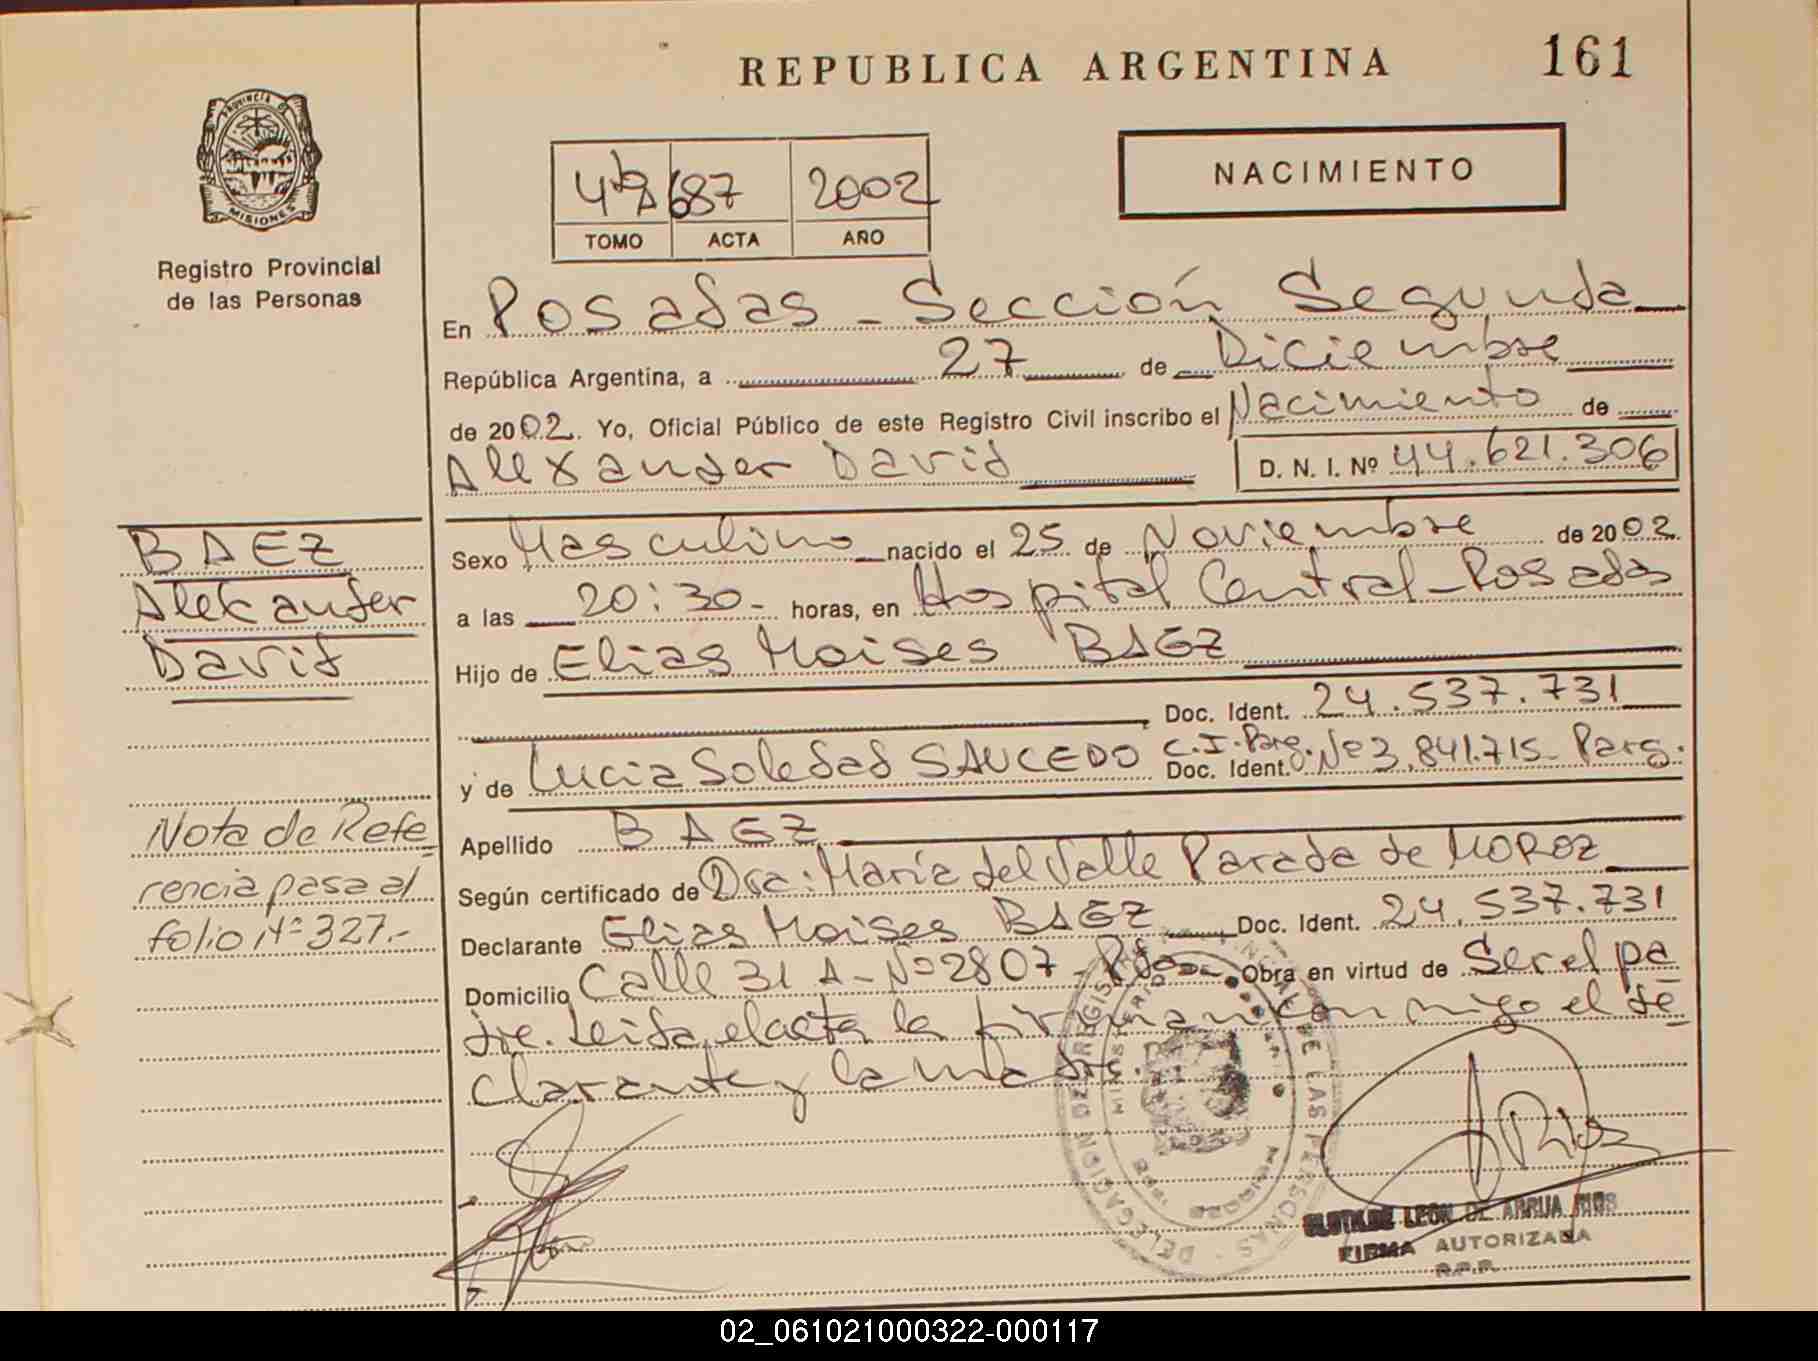 REPUBLICA ARGENTINA
161
PROVINCIA DE MISIONES
Registro Provincial
de las Personas
4º A 687 2002
TOMO ACTA AÑO
NACIMIENTO
En Posadas - Sección Segunda
República Argentina, a 27 de Diciembre
de 2002. Yo, Oficial Público de este Registro Civil inscribo el Nacimiento de
Alexander David D. N. I. Nº 44.621.306
BAEZ
Alexander
David
Sexo Masculino nacido el 25 de Noviembre de 2002
a las 20:30- horas, en Hospital Central - Posadas
Hijo de Elias Moises BAEZ
Doc. Ident. 24.537.731
y de Lucia Soledad SAUCEDO C.I. Parg. Nº 3.841.715- Parg.
Doc. Ident.
Apellido BAEZ
Según certificado de Dra: María del Valle Parada de MOROZ
Declarante Elias Moises BAEZ Doc. Ident. 24.537.731
Domicilio Calle 31 A - Nº 2807 - Pdas - Obra en virtud de Ser el pa
dre. Leida el acta la firman conmigo el de
clarante y la madre.
Nota de Refe
rencia pasa al
folio Nº 327.-
DELEGACION DE REGISTRO PROVINCIAL DE LAS PERSONAS
MINISTERIO
CLOTILDE LEON DE ARRUA RIOS
FIRMA AUTORIZADA
R.P.P.
02_061021000322-000117